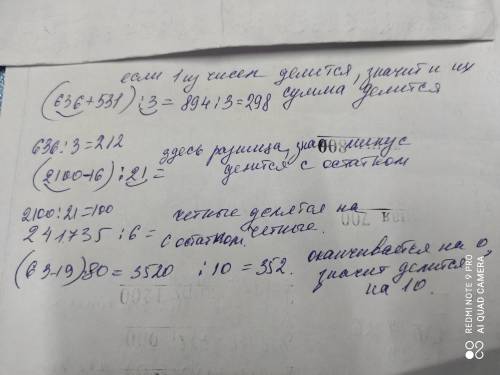 если 1 из чисел делится, значит и их
(636+531) : 3 = 894 : 3 = 298 сумма делится
636 : 3 = 212 здесь разница, знак минус
(2100-16) : 21 = делится с остатком
2100 : 21 = 100 четные делятся на
241735 : 6 = с остатком. четные.
(63-19)80 = 3520 : 10 = 352. оканчивается на 0,
значит делится
на 10.
REDMI NOTE 9 PRO
AI QUAD CAMERA